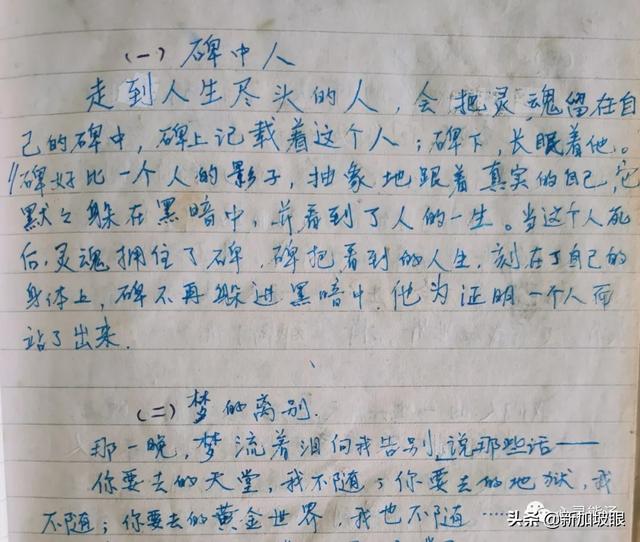 (一) 碑中人
走到人生尽头的人，会把灵魂留在自
己的碑中，碑上记载着这个人；碑下，长眠着他。
碑好比一个人的影子，抽象地跟着真实的自己，它
默々躲在黑暗中，并看到了人的一生。当这个人死
后，灵魂拥住了碑，碑把看到的人生，刻在了自己的
身体上，碑不再躲进黑暗中，他为证明一个人而
站了出来。
(二) 梦的离别.
那一晚，梦流着泪向我告别，说那些话——
你要去的天堂，我不随；你要去的地狱，我
不随；你要去的黄金世界，我也不随……
头条 @新加坡眼